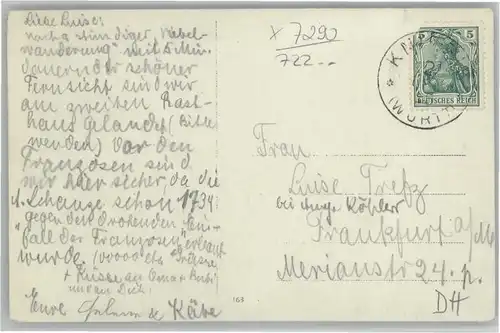 Liebe Luise!
nach 2 stündiger „Nebel-
wanderung“ mit 5 Min.
dauernder schöner
Fernsicht sind wir
am zweiten Rast-
haus gelandet (Bitte
wenden) Vor den
Franzosen sind
wir hier sicher, da die
1. Schanze schon 1734
„gegen den drohenden Ein-
fall der Franzosen“ erbaut
wurde
+ Küsse an Oma +
und an Dich!
Eure Helene & Käte
x 7290
722 --
5
DEUTSCHES REICH
KN
(WÜRTT
Frau
Luise Trefz
bei Köhler
Frankfurt a/M
Merianstr 24. p.
DH
163